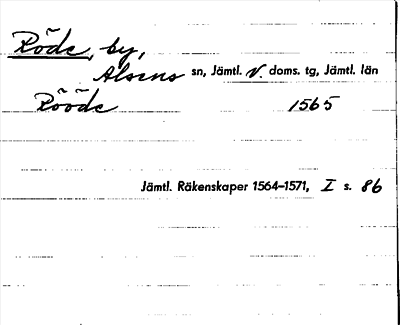 Röde, by,
Alsens sn, Jämtl. V. doms. tg, Jämtl. län
Rööde 1565
Jämtl. Räkenskaper 1564–1571, I s. 86